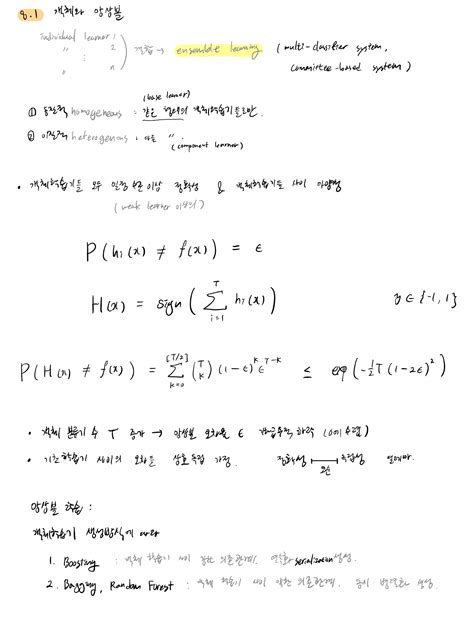 8.1 개체와 앙상블
individual learner 1
〃 2 결합 → ensemble learning (multi-classifier system,
: n committee-based system)
① 동질적 homogeneous : 같은 형태의 개체학습기들로만. (base learner)
② 이질적 heterogenous : 다른 〃. (component learner)
• 개체학습기들 모두 일정 수준 이상 정확성 & 개체학습기들 사이 다양성
(weak learner 이상의)
P(hi(x) ≠ f(x)) = ϵ
H(x) = sign(∑_{i=1}^{T} hi(x)) y ∈ {-1, 1}
P(H(x) ≠ f(x)) = ∑_{k=0}^{[T/2]} (T k) (1-ϵ)^k ϵ^{T-k} ≤ exp(-½T(1-2ϵ)²)
• 개체 분류기 수 T 증가 → 앙상블 오차율 ϵ 지수적 하락 (0에 수렴)
• 기초학습기 사이의 오차는 상호독립 가정. 정확성 독립성
앙상블 학습 :
개체학습기 생성방식에 따라
1. Boosting : 개체 학습기 사이 강한 의존관계. 연속화 serialization 생성.
2. Bagging, Random Forest : 개체 학습기 사이 약한 의존관계. 동시 병렬화 생성.